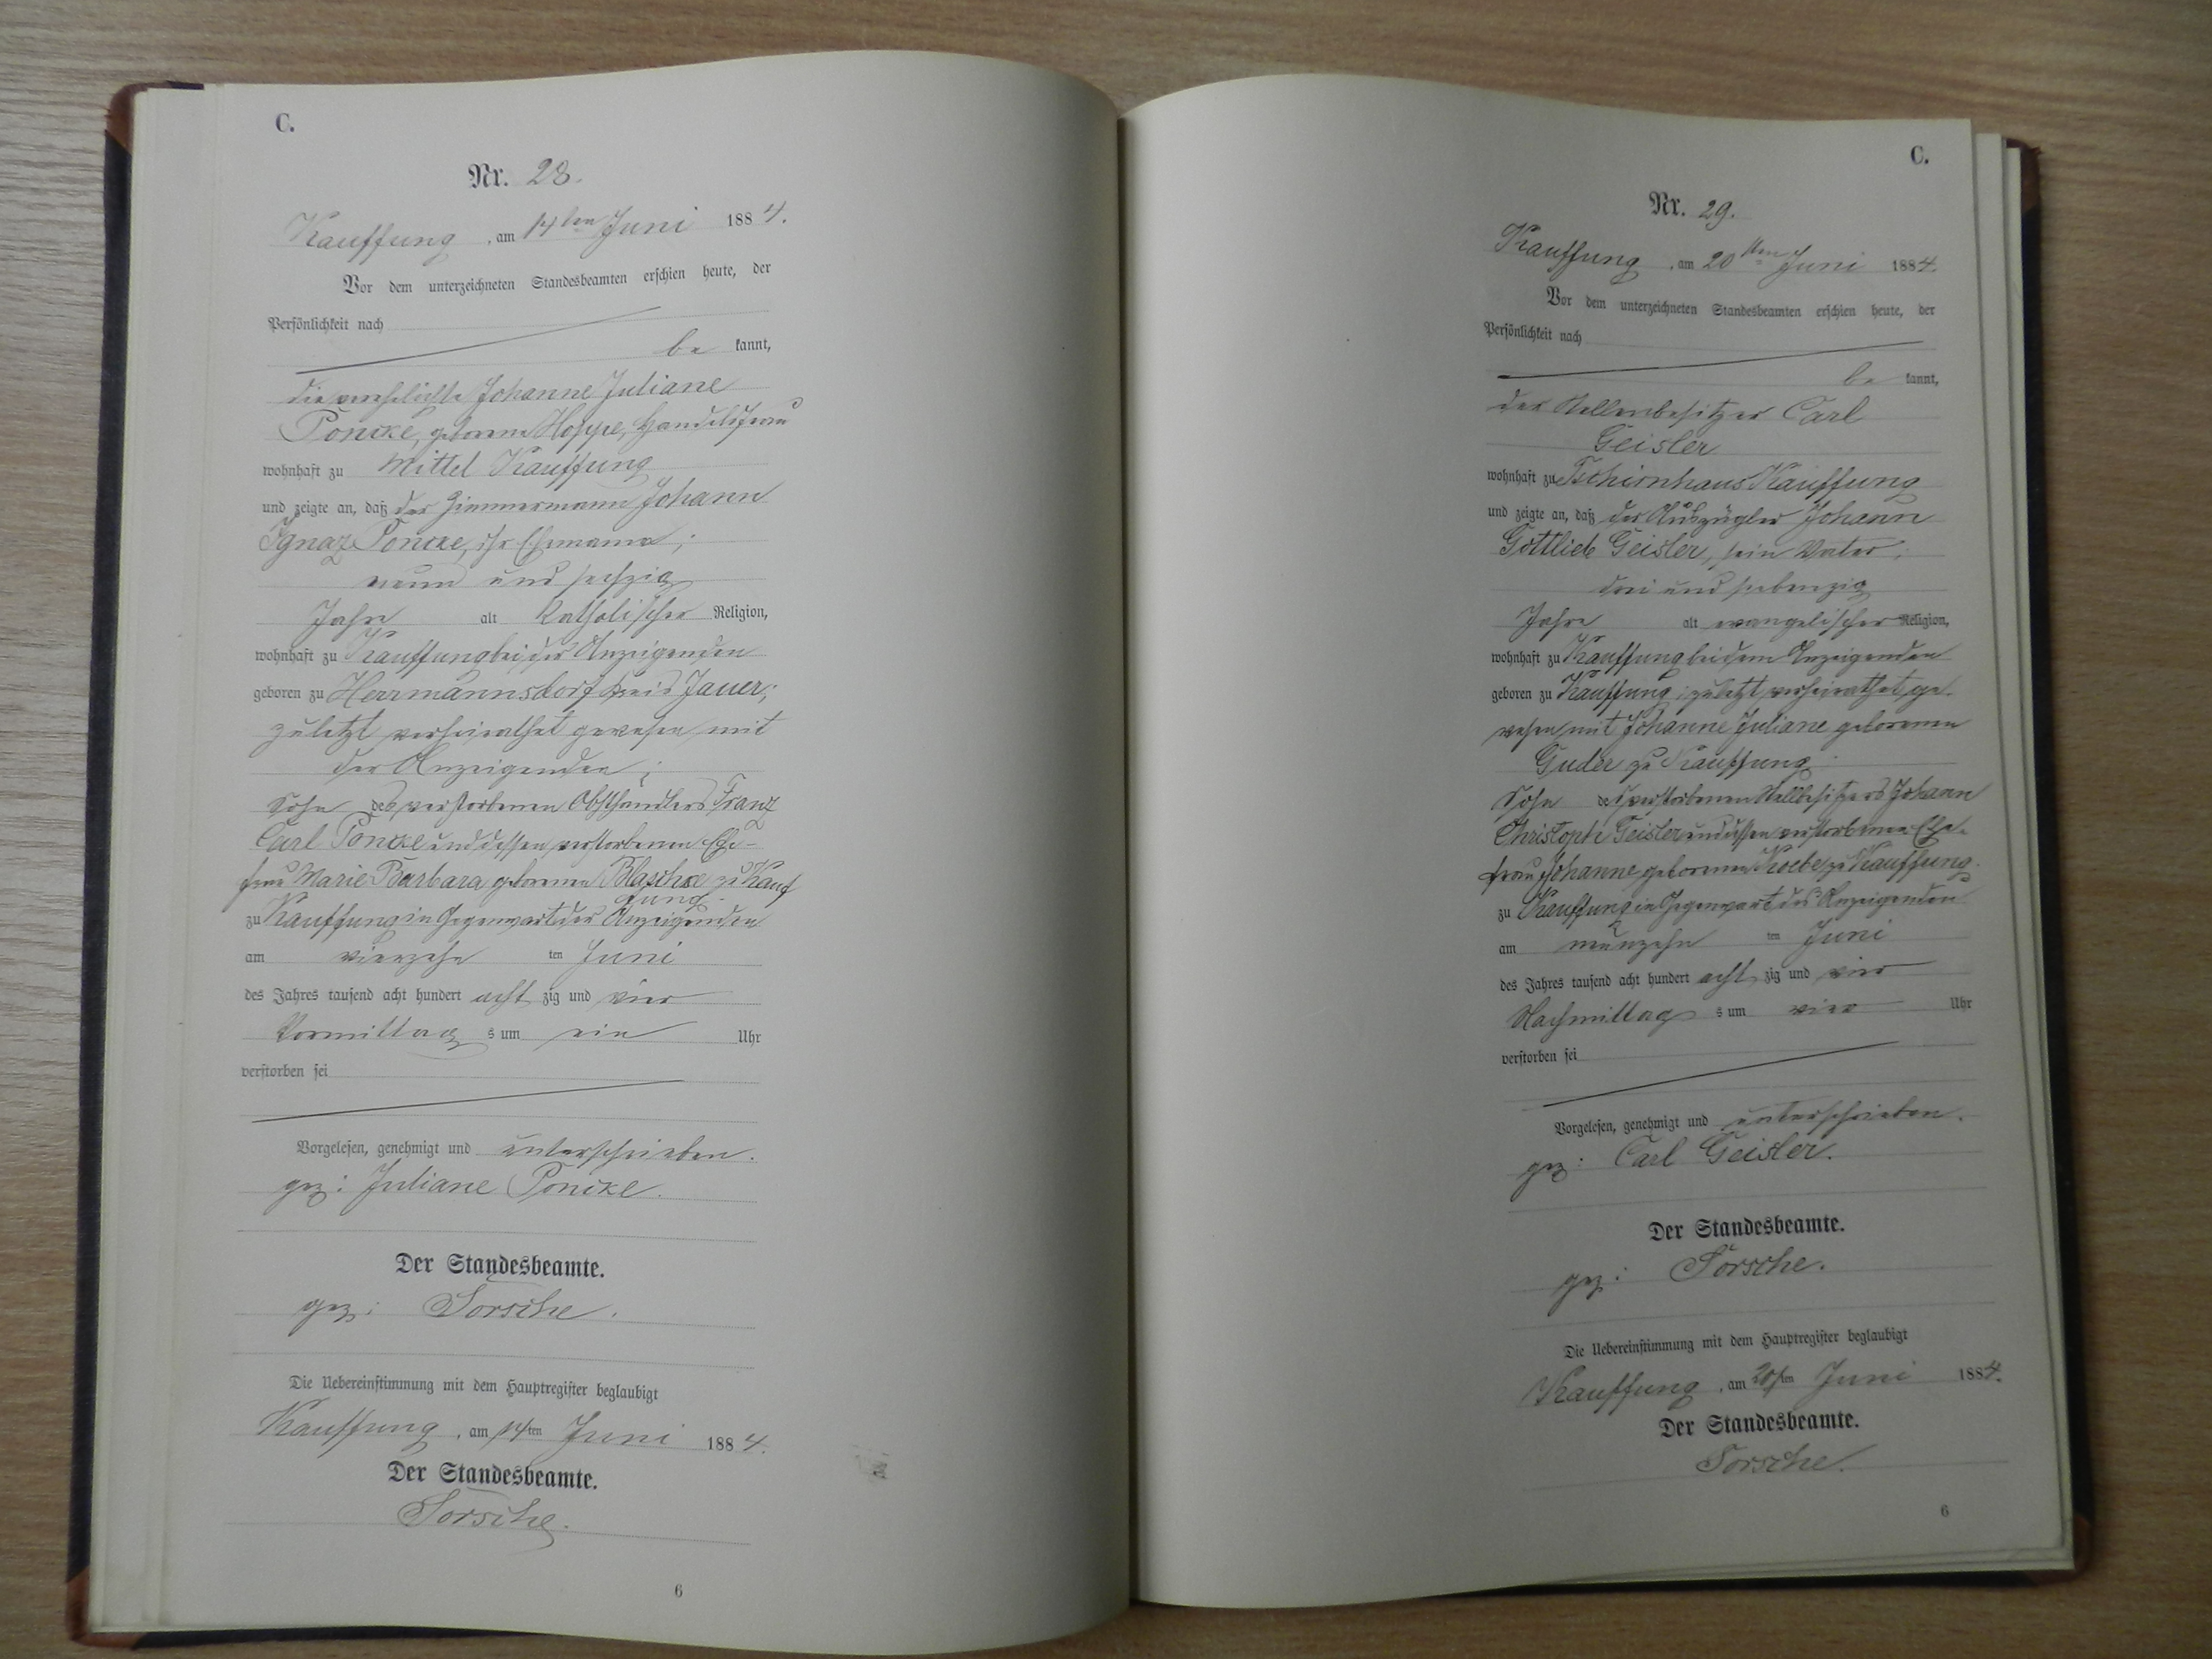 C.
Nr. 28.
Kauffung, am 14ten Juni 1884.
Vor dem unterzeichneten Standesbeamten erschien heute, der
Persönlichkeit nach
be kannt,
die verehelichte Johanne Juliane
Poncke, geborene Hoppe, Handelsfrau
wohnhaft zu Mittel Kauffung
und zeigte an, daß der Zimmermann Johann
Ignaz Poncke, ihr Ehemann;
neun und sechzig
Jahre alt katholischer Religion,
wohnhaft zu Kauffung bei der Anzeigenden
geboren zu Herrmannsdorf Kreis Jauer;
zuletzt verheirathet gewesen mit
der Anzeigenden;
Sohn des verstorbenen Obsthändlers Franz
Carl Poncke und dessen verstorbenen Ehe-
frau Marie Barbara geborenen Blaschke zu Kauf
fung.
zu Kauffung in Gegenwart der Anzeigenden
am vierzehn ten Juni
des Jahres tausend acht hundert acht zig und vier
Vormittag s um ein Uhr
verstorben sei
Vorgelesen, genehmigt und unterschrieben.
gez: Juliane Poncke.
Der Standesbeamte.
gez: Sorsche.
Die Uebereinstimmung mit dem Hauptregister beglaubigt
Kauffung, am 14ten Juni 1884.
Der Standesbeamte.
Sorsche.
6
C.
Nr. 29.
Kauffung, am 20ten Juni 1884.
Vor dem unterzeichneten Standesbeamten erschien heute, der
Persönlichkeit nach
be kannt,
der Stellenbesitzer Carl
Geisler
wohnhaft zu Tschirnhaus Kauffung
und zeigte an, daß der Auszügler Johann
Gottlieb Geisler, sein Vater;
drei und siebenzig
Jahre alt evangelischer Religion,
wohnhaft zu Kauffung bei dem Anzeigenden
geboren zu Kauffung; zuletzt verheirathet ge-
wesen mit Johanne Juliane geborenen
Guder zu Kauffung
Sohn des verstorbenen Stellbesitzers Johann
Christoph Geisler und dessen verstorbenen Ehe-
frau Johanne geborenen Koebe zu Kauffung.
zu Kauffung in Gegenwart des Anzeigenden
am neunzehn ten Juni
des Jahres tausend acht hundert acht zig und vier
Nachmittag s um vier Uhr
verstorben sei
Vorgelesen, genehmigt und unterschrieben.
gez: Carl Geisler.
Der Standesbeamte.
gez: Sorsche.
Die Uebereinstimmung mit dem Hauptregister beglaubigt
Kauffung, am 20ten Juni 1884.
Der Standesbeamte.
Sorsche.
6